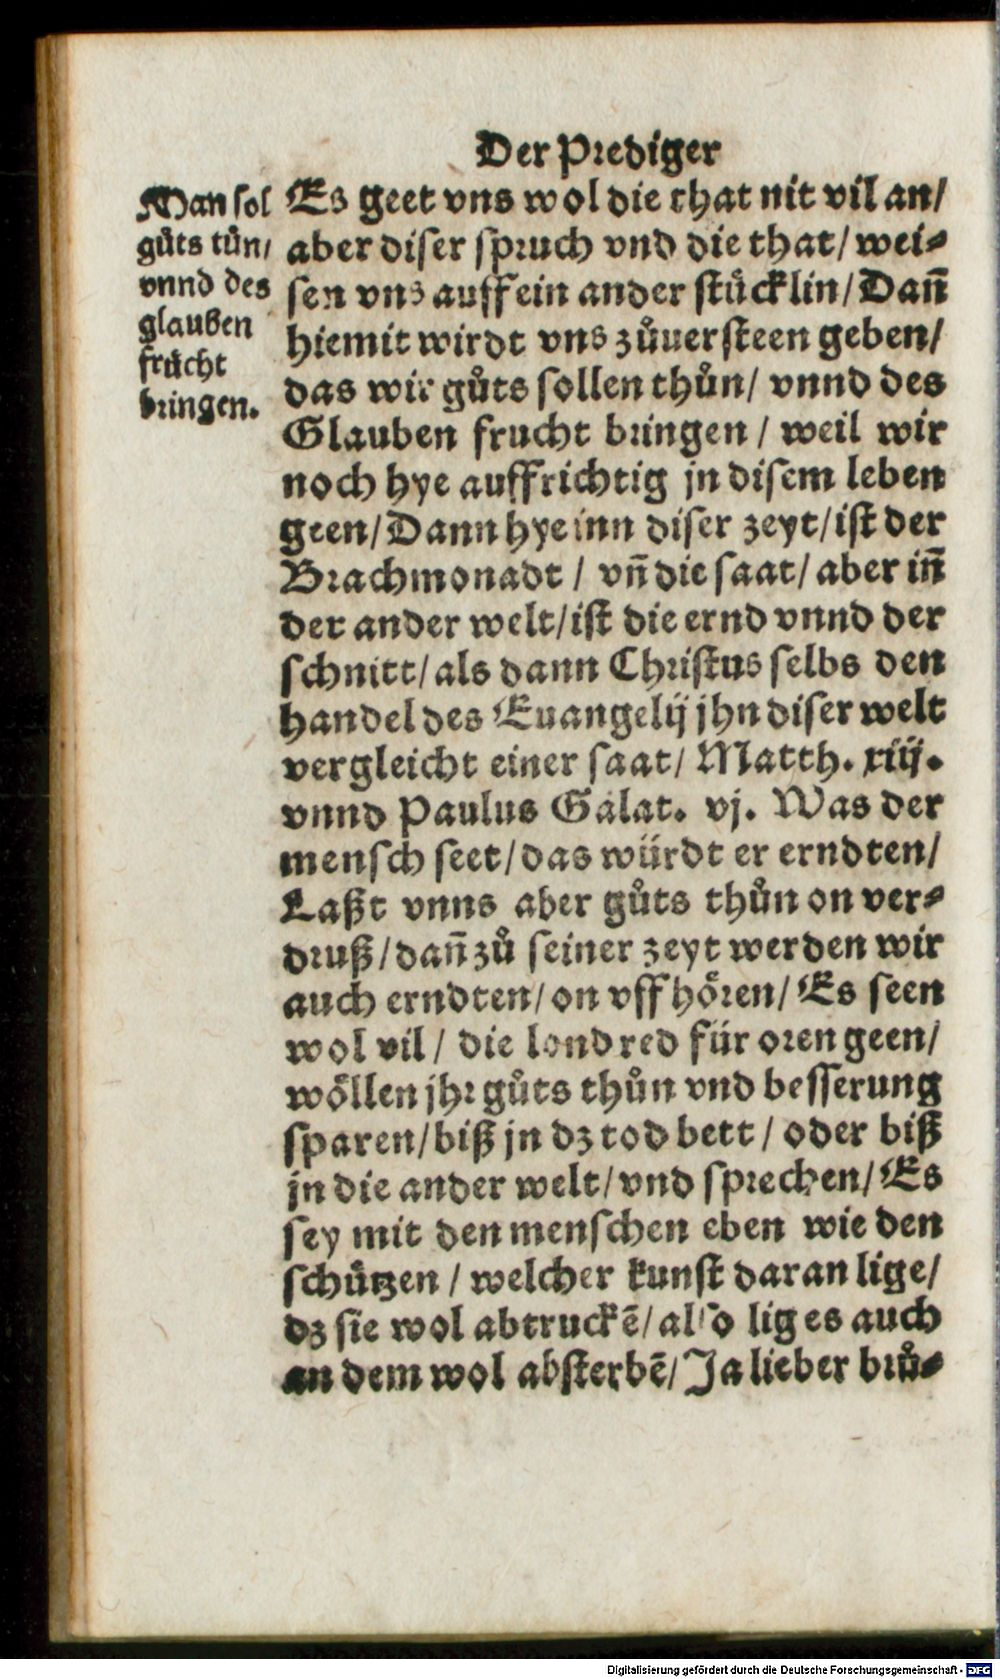 Der Prediger
Man sol
gůts tůn/
vnnd des
glauben
frücht
bringen.
Es geet vns wol die that nit vil an/
aber diser spruch vnd die that/ wei⸗
sen vns auff ein ander stücklin/ Dañ
hiemit wirdt vns zůuersteen geben/
das wir gůts sollen thůn/ vnnd des
Glauben frucht bringen/ weil wir
noch hye auffrichtig jn disem leben
geen/ Dann hye inn diser zeyt/ ist der
Brachmonadt/ vñ die saat/ aber iñ
der ander welt/ ist die ernd vnnd der
schnitt/ als dann Christus selbs den
handel des Euangelij jhn diser welt
vergleicht einer saat/ Matth. xiij.
vnnd Paulus Galat. vj. Was der
mensch seet/ das würdt er erndten/
Laßt vnns aber gůts thůn on ver⸗
druß/ dañ zů seiner zeyt werden wir
auch erndten/ on vffhören/ Es seen
wol vil/ die lond red für oren geen/
wöllen jhr gůts thůn vnd besserung
sparen/ biß jn dz tod bett/ oder biß
jn die ander welt/ vnd sprechen/ Es
sey mit den menschen eben wie den
schützen/ welcher kunst daran lige/
dz sie wol abtruckē/ also lig es auch
an dem wol absterbē/ Ja lieber brů⸗
Digitalisierung gefördert durch die Deutsche Forschungsgemeinschaft - DFG